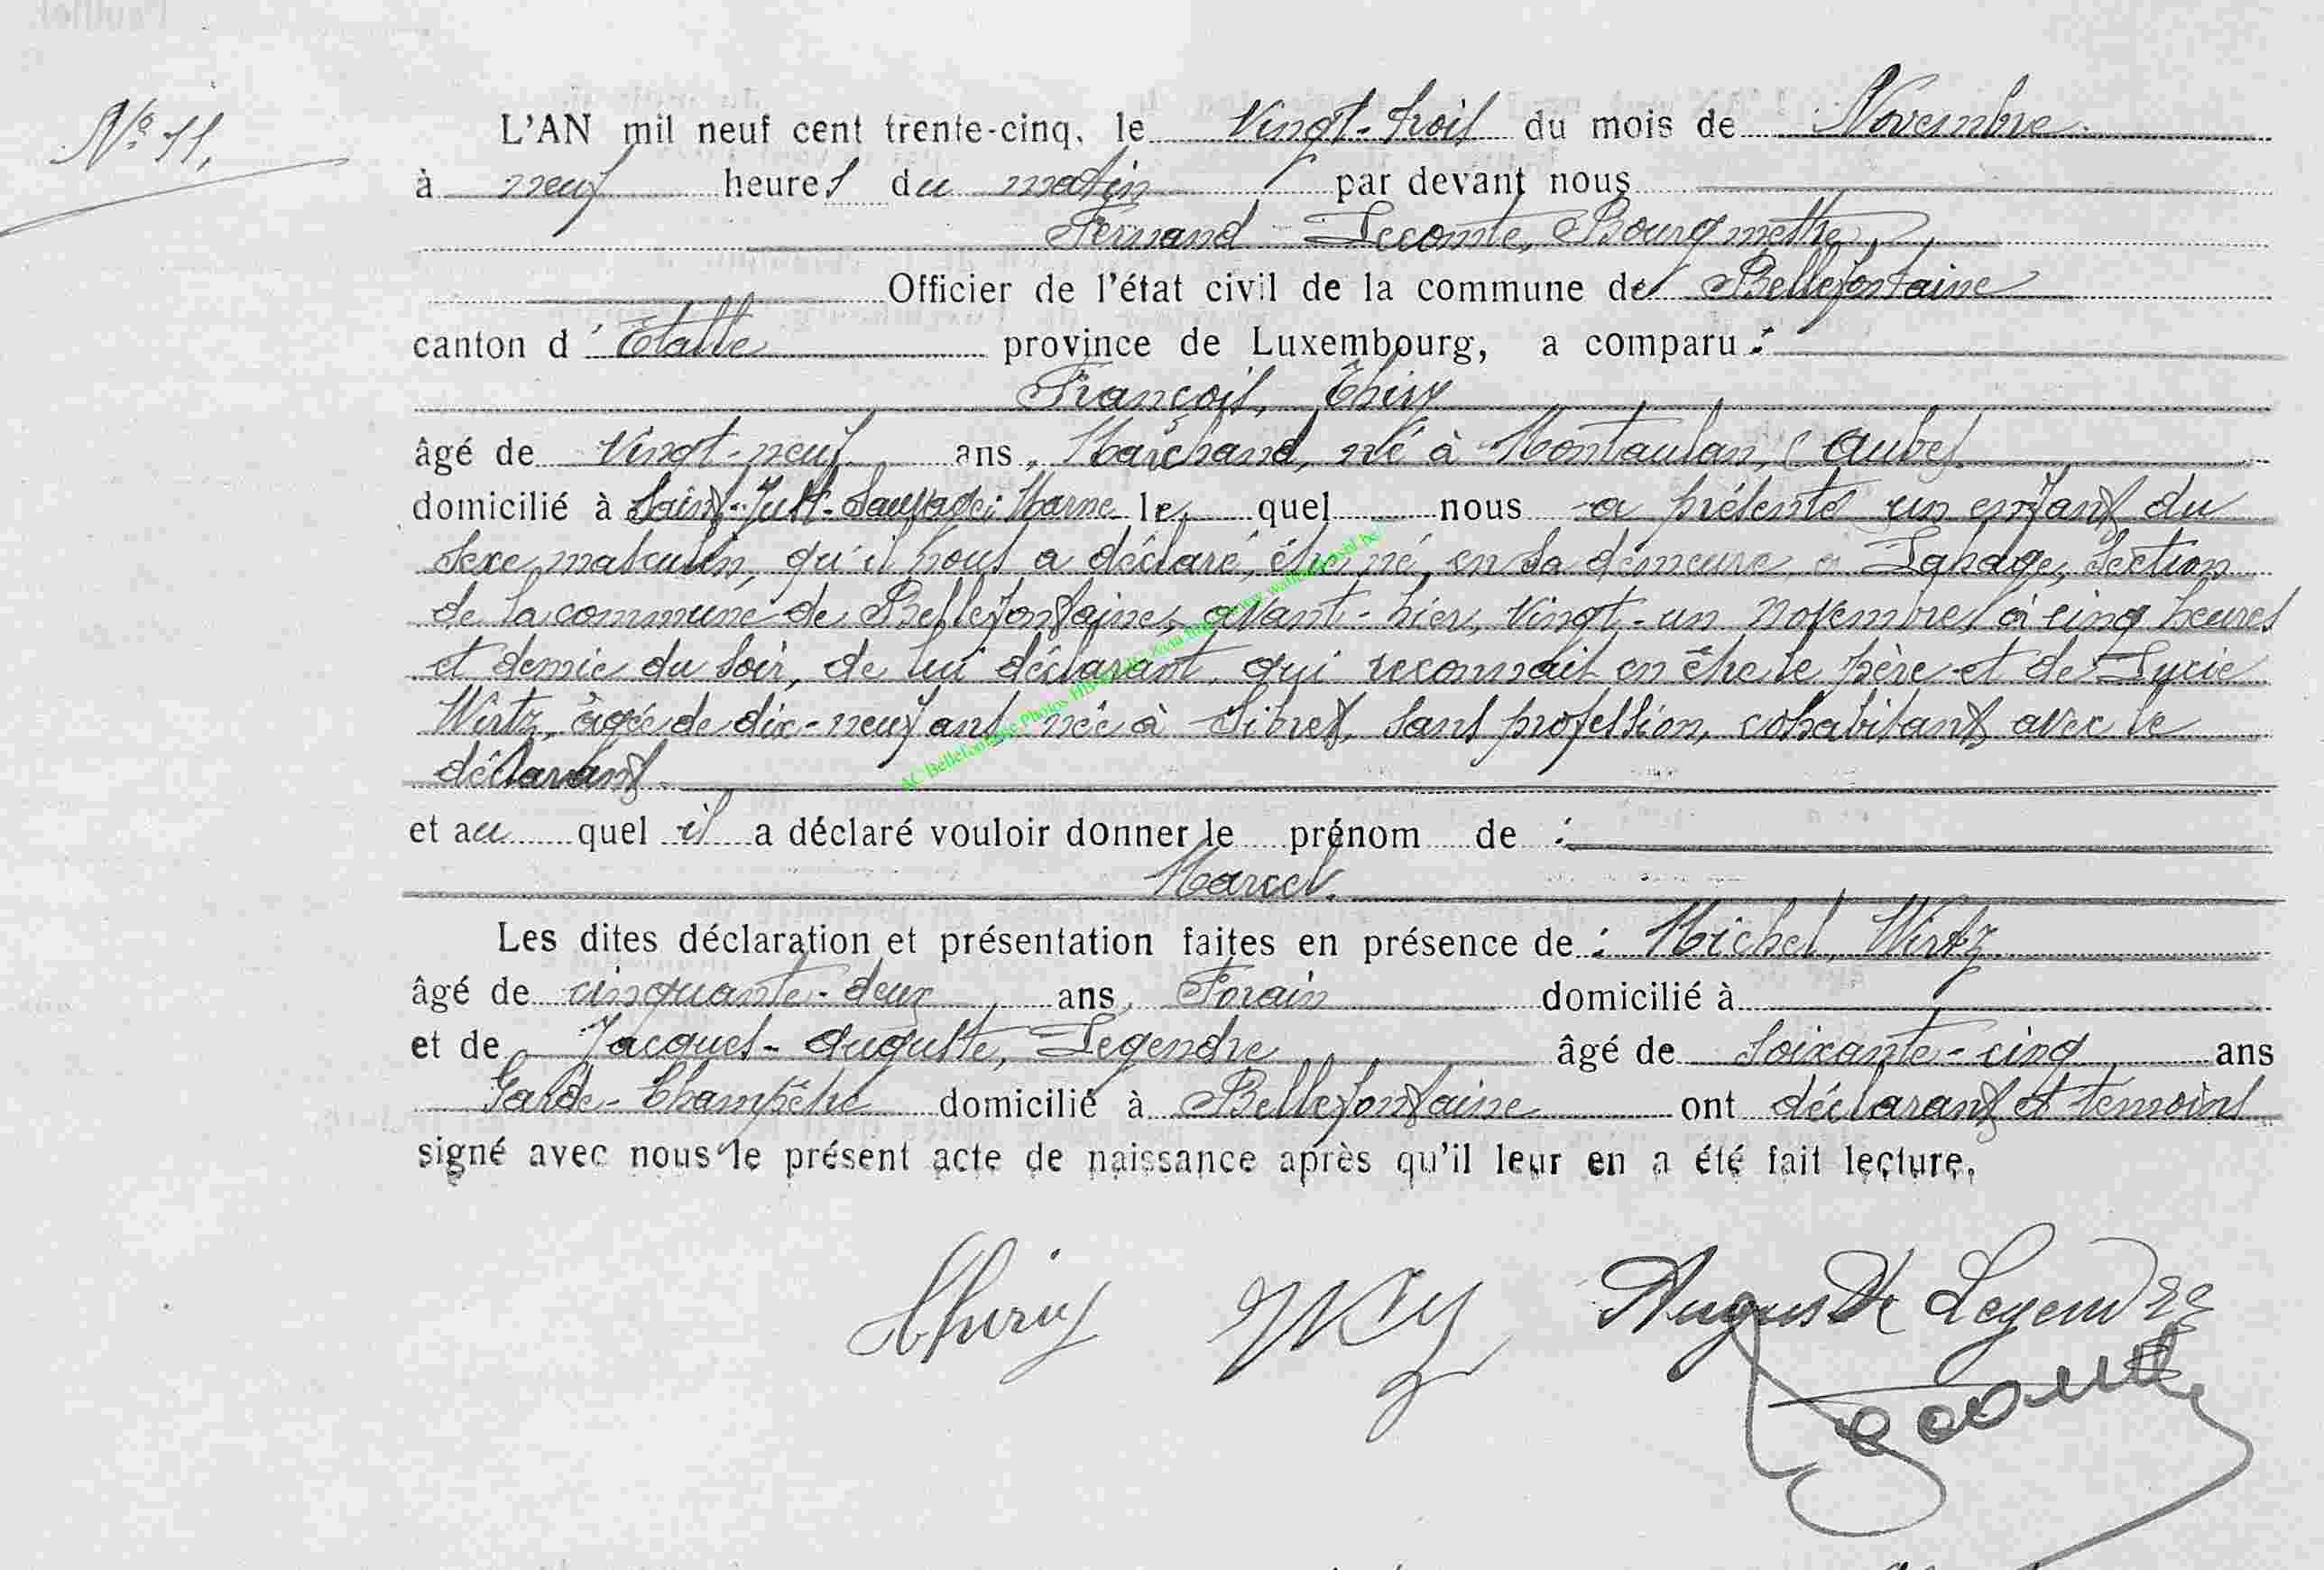 N° 11.
L'AN mil neuf cent trente-cinq, le Vingt-trois du mois de Novembre
à neuf heures du matin par devant nous
Fernand Lecomte, Bourgmestre,
Officier de l'état civil de la commune de Bellefontaine
canton d'Etalle province de Luxembourg, a comparu :
François, Thiry
âgé de Vingt-neuf ans, Marchand, né à Montaulan, (Aube)
domicilié à Saint-Just-Sauvage, Marne lequel nous a présenté un enfant du
sexe masculin, qu'il nous a déclaré, être né, en sa demeure, à Lahage, section
de la commune de Bellefontaine, avant-hier, vingt-un novembre, à cinq heures
et demie du soir, de lui déclarant, qui reconnait en être le père et de Lucie
Wirtz, âgée de dix-neuf ans, née à Sibret, sans profession, cohabitant avec le
déclarant
et au quel il a déclaré vouloir donner le prénom de :
Marcel.
Les dites déclaration et présentation faites en présence de : Michel, Wirtz
âgé de cinquante-deux ans, Forain domicilié à
et de Jacques-Auguste, Legendre âgé de soixante-cinq ans
Garde-Champêtre domicilié à Bellefontaine ont déclarant et témoins
signé avec nous le présent acte de naissance après qu'il leur en a été fait lecture.
Thiry Auguste Legendre
Lecomte
AC Bellefontaine Photos